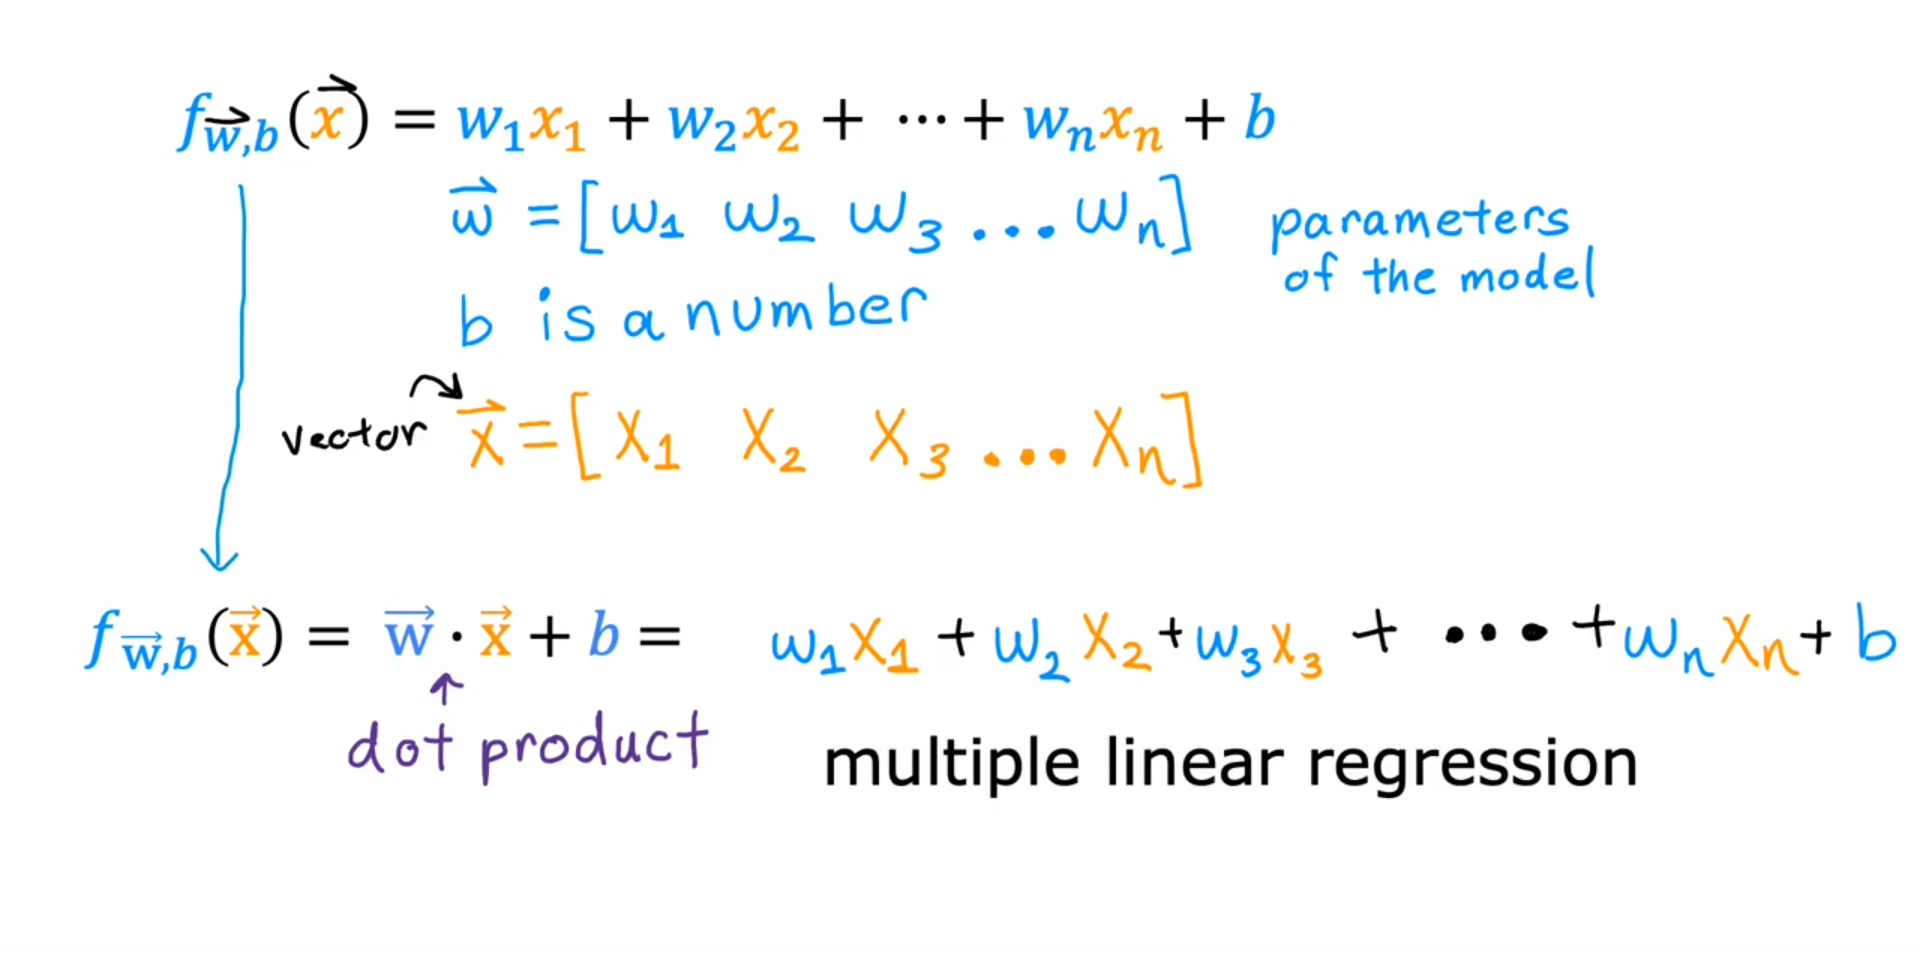 f_{\vec{w},b}(\vec{x}) = w₁x₁ + w₂x₂ + ⋯ + wₙxₙ + b
\vec{w} = [w₁ w₂ w₃ ... wₙ] parameters
of the model
b is a number
vector \vec{x} = [x₁ x₂ x₃ ... xₙ]
f_{\vec{w},b}(\vec{x}) = \vec{w} · \vec{x} + b = w₁x₁ + w₂x₂ + w₃x₃ + ... + wₙxₙ + b
dot product
multiple linear regression